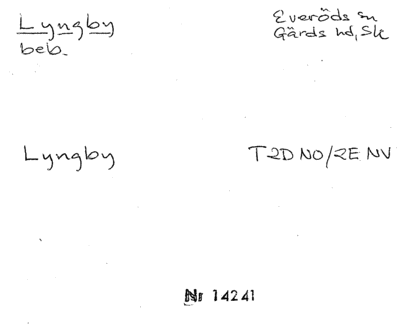 Lyngby
beb.
Everöds sn
Gärds hd, Sk
Lyngby
T2D NO/2E NV
Nr 14241